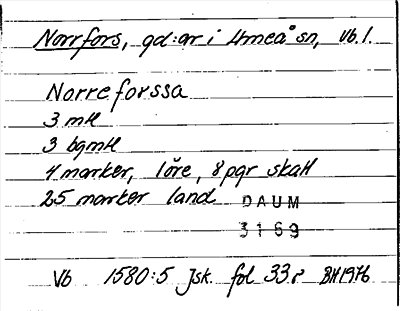 Norrfors, gd:ar i Umeå sn, Vb l.
Norreforssa
3 mtl
3 bgmtl
4 marker, 1 öre, 8 pgr skatt
25 marker land
DAUM
3169
Vb 1580:5 Jsk. fol 33 r BH 1976